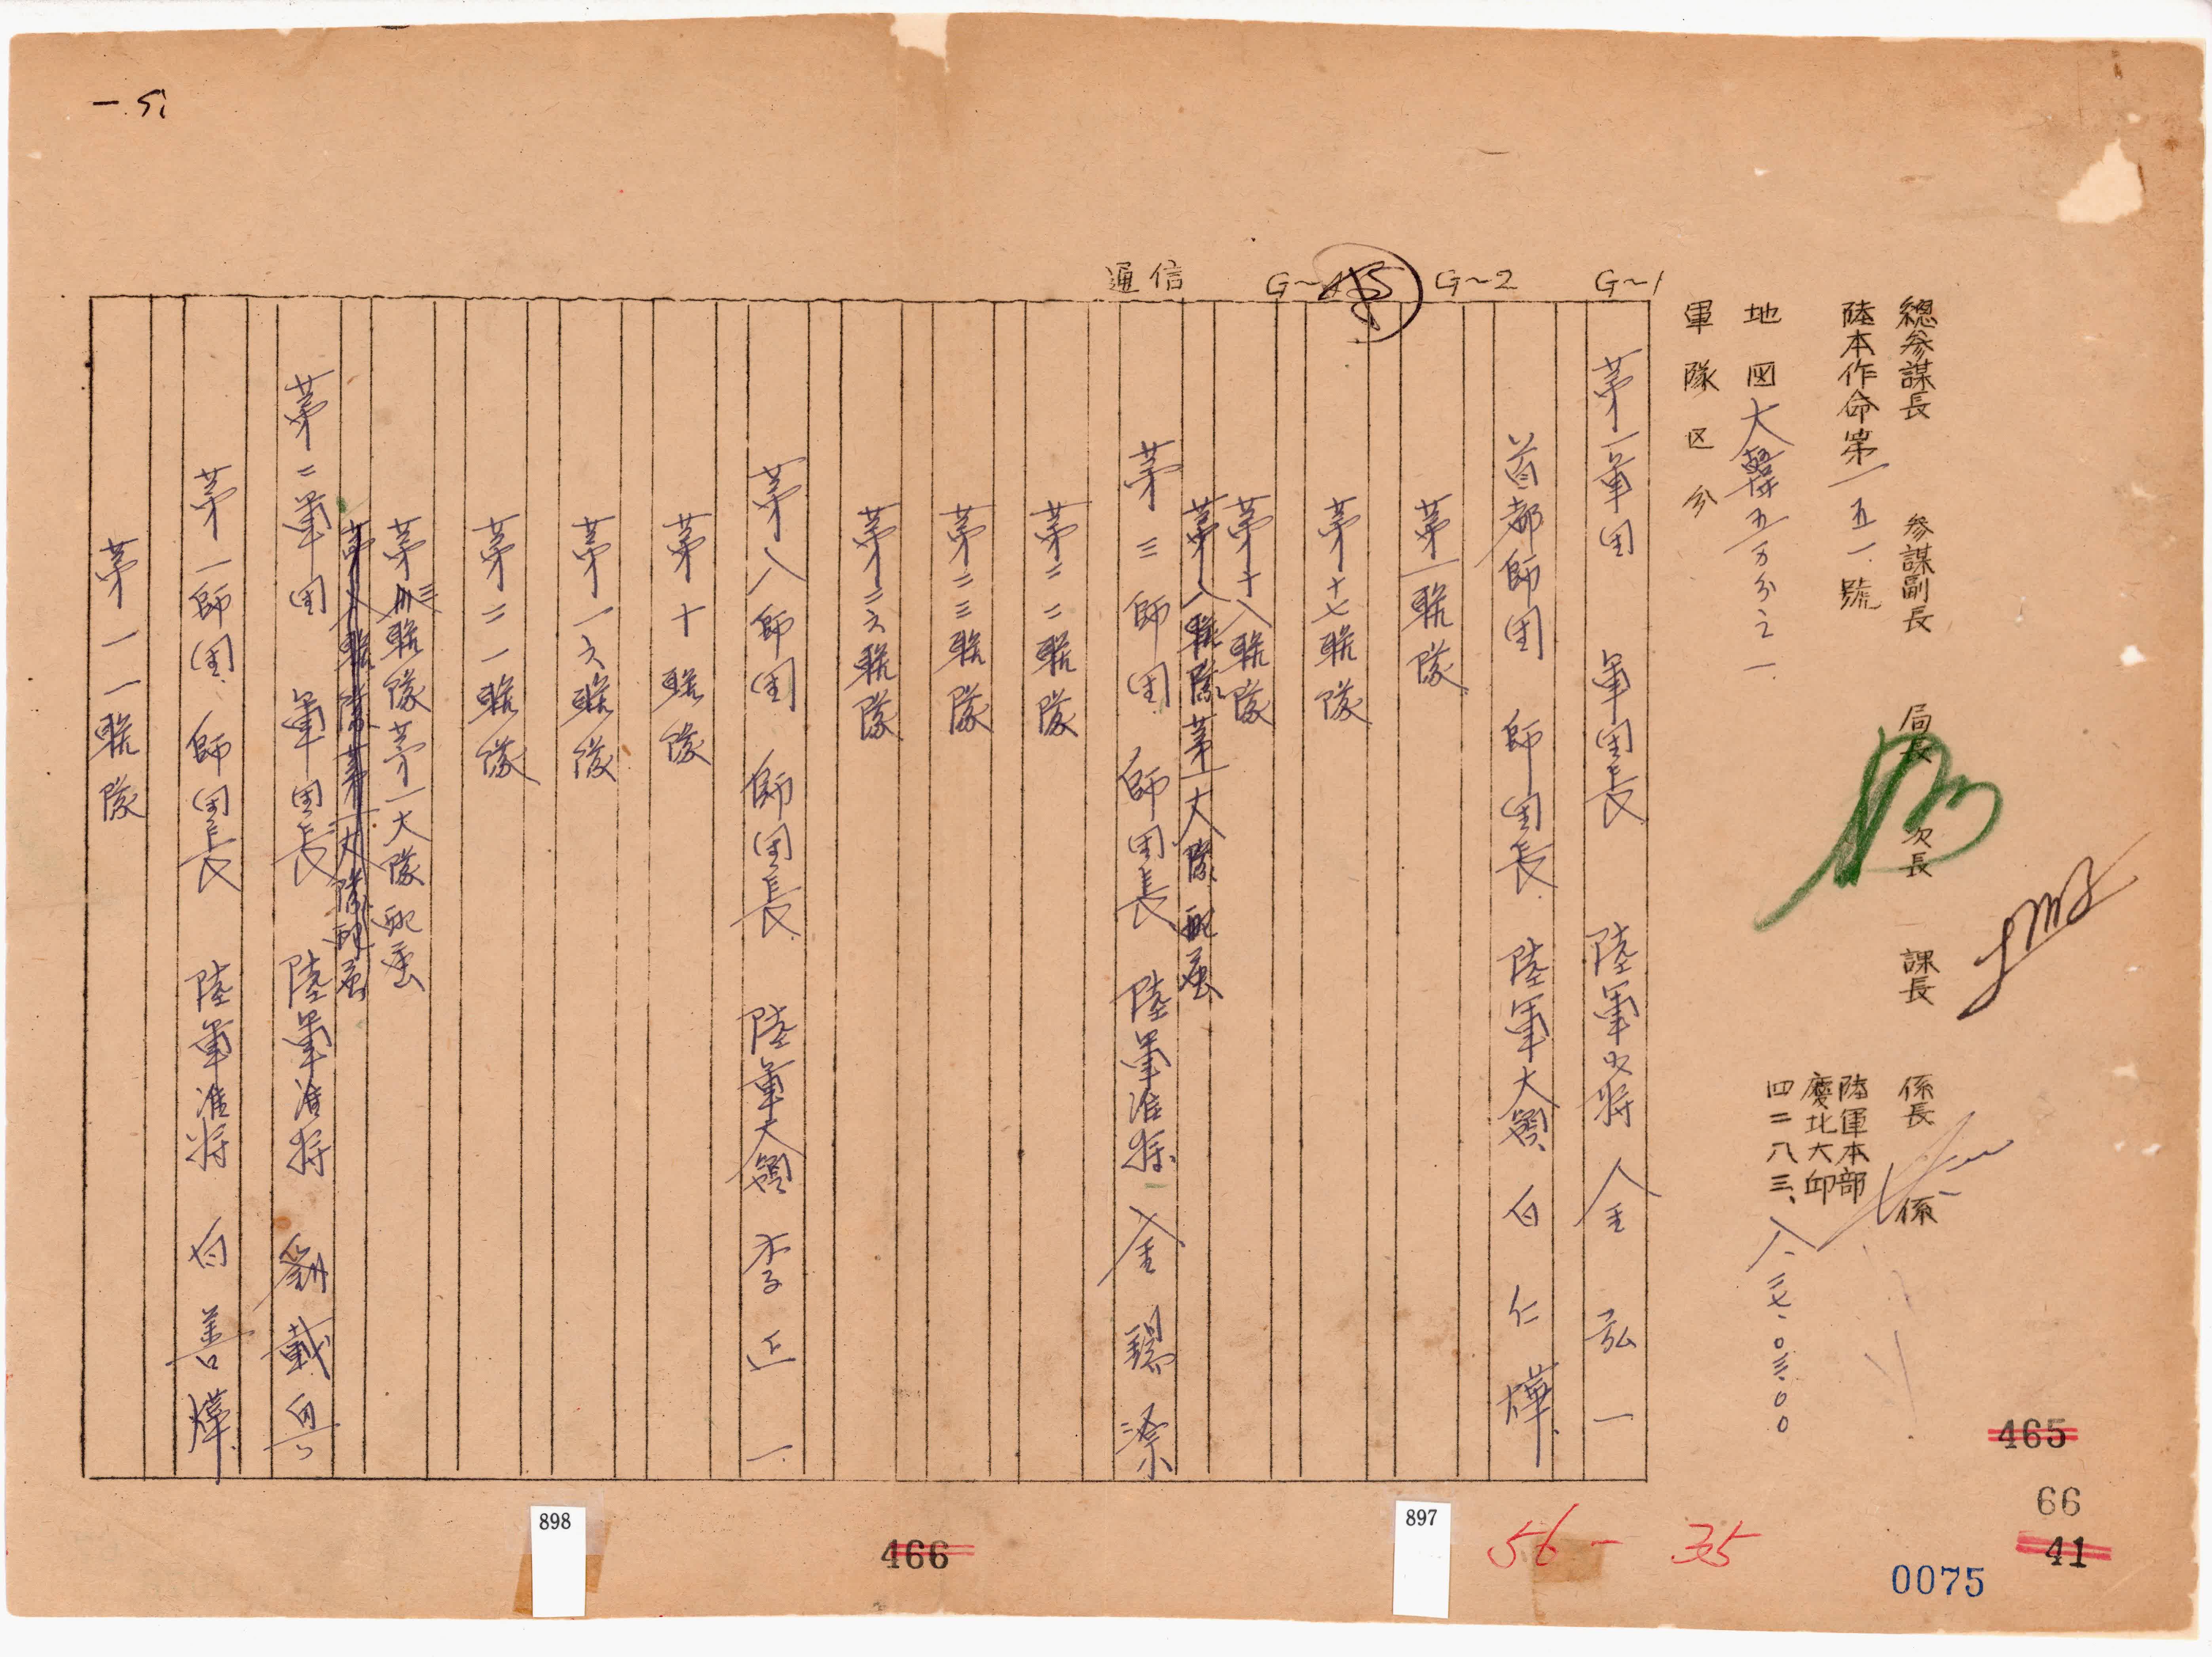 總參謀長 參謀副長 局長 次長 課長 係長 係
陸本作命第一五一號
陸軍本部
慶北大邱
四二八三、八、二七、〇三、〇〇
地図大韓五万分之一
軍隊区分
G~1
G~2
G~
通信
第一軍団 軍団長 陸軍少将 金弘一
首都師団 師団長 陸軍大領 白仁燁
第一聯隊
第十七聯隊
第十八聯隊
第八聯隊第一大隊配属
第三師団 師団長 陸軍准将 金錫源
第二二聯隊
第二三聯隊
第二六聯隊
第八師団 師団長 陸軍大領 李正一
第十聯隊
第一六聯隊
第二一聯隊
聯隊第一大隊配属
第八聯隊第一大隊配属
第二軍団 軍団長 陸軍准将 劉載興
第一師団 師団長 陸軍准将 白善燁
第一一聯隊
465
66
41
0075
56-35
897
466
898